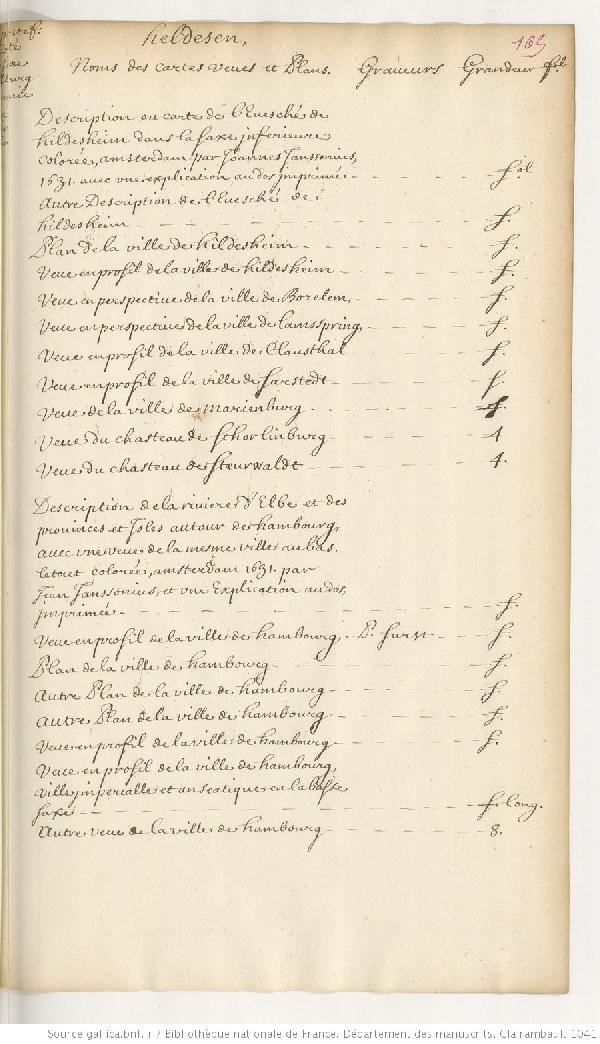 heldesen,
165
Noms des cartes veues et Plans. Graveurs Grandeur
Description ou carte de l'Evesché de
hildesheim dans la saxe inferieure
colorée, amsterdam par Joannes Janssonius,
1631. avec une explication au dos jmprimée - - - - - f.ol
Autre Description de l'Evesché de
hildesheim - - - - - f.
Plan de la ville de hildesheim - - - - - f.
Veue en profil de la ville de hildesheim - - - - f.
Veue en perspective de la ville de Borelem, - - - - f.
Veue en perspective de la ville de lamsspring, - - - f.
Veue en profil de la ville de Clausthal f.
Veue en profil de la ville de sarstedt - - - - f.
Veue de la ville de marienburg - - - - 4.
Veue du chasteau de schorlinburg - - - - 4
Veue du chasteau de steurwaldt - - - - 4.
Description de la riviere d'Elbe et des
provinces et jsles autour de hambourg,
avec une veue de la mesme ville au bas.
le tout colorée, amsterdam 1631. par
Jean Janssonius, et une Explication au dos,
jmprimée - - - - - f.
Veue en profil de la ville de hambourg, - P. furst - - f.
Plan de la ville de hambourg - - - - f.
Autre Plan de la ville de hambourg - - - - f.
Autre Plan de la ville de hambourg - - - - f.
Veue en profil de la ville de hambourg - - - - f.
Veue en profil de la ville de hambourg,
ville jmperialle et anseatique en la basse
saxe - - - - - f. long.
Autre veue de la ville de hambourg - - - - 8.
Source gallica.bnf.fr / Bibliothèque nationale de France. Département des manuscrits. Clairambault. 1041